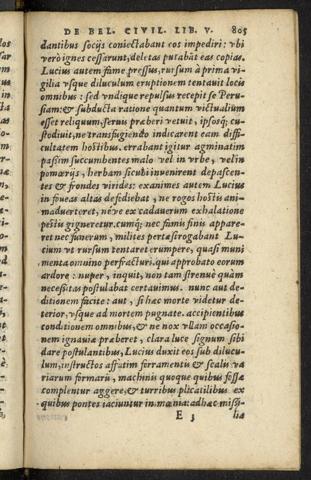 DE BEL. CIVIL. LIB. V. 805
dantibus socijs coniectabant eos impediri: vbi
verò ignes cessarunt, deletas putabāt eas copias.
Lucius autem fame pressus, rursum à prima vi-
gilia vsque diluculum eruptionem tentauit locis
omnibus: sed vndique repulsus recepit se Peru-
siam: & subducta ratione quantum victualium
esset reliquum, seruis præberi vetuit, ipsosq; cu-
stodiuit, ne transfugiendo indicarent eam diffi-
cultatem hostibus. errabant igitur agminatim
passim succumbentes malo vel in vrbe, vel in
pomœrijs, herbam sicubi inuenirent depascen-
tes & frondes virides: exanimes autem Lucius
in foueas altas defodiebat, ne rogos hostis ani-
maduerteret, néve ex cadauerum exhalatione
pestis gigneretur. cumq; nec famis finis appare-
ret nec funerum, milites pertæsi rogabant Lu-
cium vt rursum tentaret erumpere, quasi muni
menta omnino perfracturi. qui approbato eorum
ardore: nuper, inquit, non tam strenuè quàm
necesitas postulabat certauimus. nunc aut de-
ditionem facite: aut, si hac morte videtur de-
terior, vsque ad mortem pugnate. accipientibus
conditionem omnibus, & ne nox vllam occasio-
nem ignauiæ præberet, clara luce signum sibi
dare postulantibus, Lucius duxit eos sub dilucu-
lum, instructos affatim ferramentis & scalis va
riarum formarū, machinis quoque quibus fossæ
complentur aggere, & turribus plicatilibus ex
quibus pontes iaciuntur in mœnia: adhæc missi-
E 3 lia